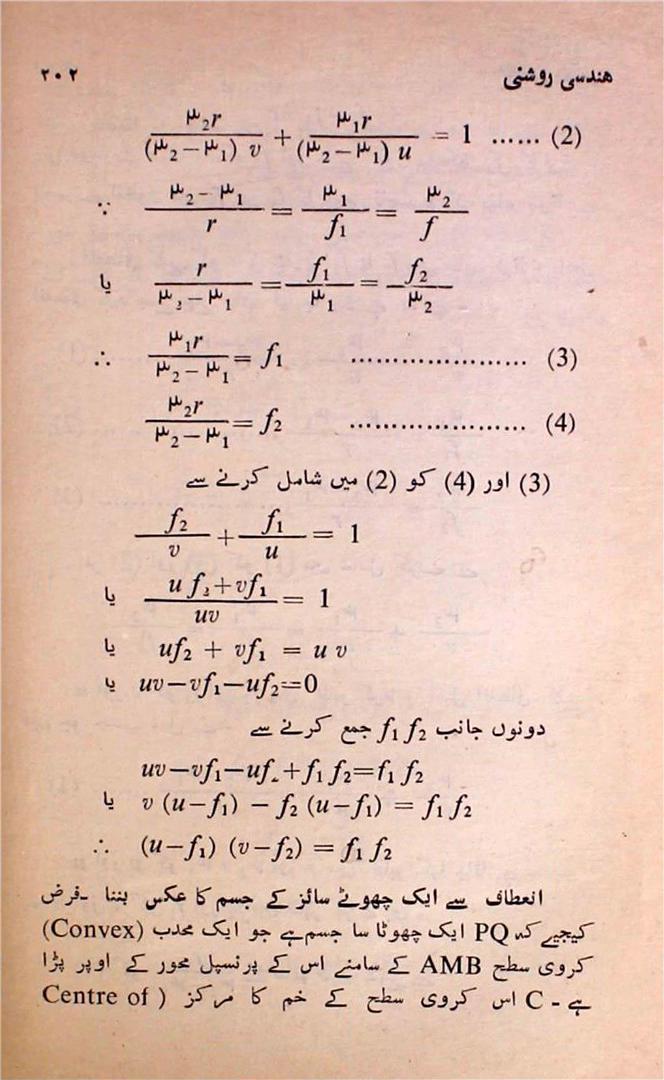 هندسی روشنی ۲۰۲
μ₂r/((μ₂−μ₁) v) + μ₁r/((μ₂−μ₁) u) = 1 ...... (2)
∵ (μ₂−μ₁)/r = μ₁/f₁ = μ₂/f
یا r/(μ₂−μ₁) = f₁/μ₁ = f₂/μ₂
∴ μ₁r/(μ₂−μ₁) = f₁ ..................... (3)
μ₂r/(μ₂−μ₁) = f₂ ..................... (4)
(3) اور (4) کو (2) میں شامل کرنے سے
f₂/v + f₁/u = 1
یا (u f₂+vf₁)/uv = 1
یا uf₂ + vf₁ = u v
یا uv−vf₁−uf₂=0
دونوں جانب f₁ f₂ جمع کرنے سے
uv−vf₁−uf.+f₁ f₂=f₁ f₂
یا v (u−f₁) − f₂ (u−f₁) = f₁ f₂
∴ (u−f₁) (v−f₂) = f₁ f₂
انعطاف سے ایک چھوٹے سائز کے جسم کا عکس بننا ۔فرض
کیجیے کہ PQ ایک چھوٹا سا جسم ہے جو ایک محدب (Convex)
کروی سطح AMB کے سامنے اس کے پرنسپل محور کے اوپر پڑا
ہے ۔ C اس کروی سطح کے خم کا مرکز ( Centre of